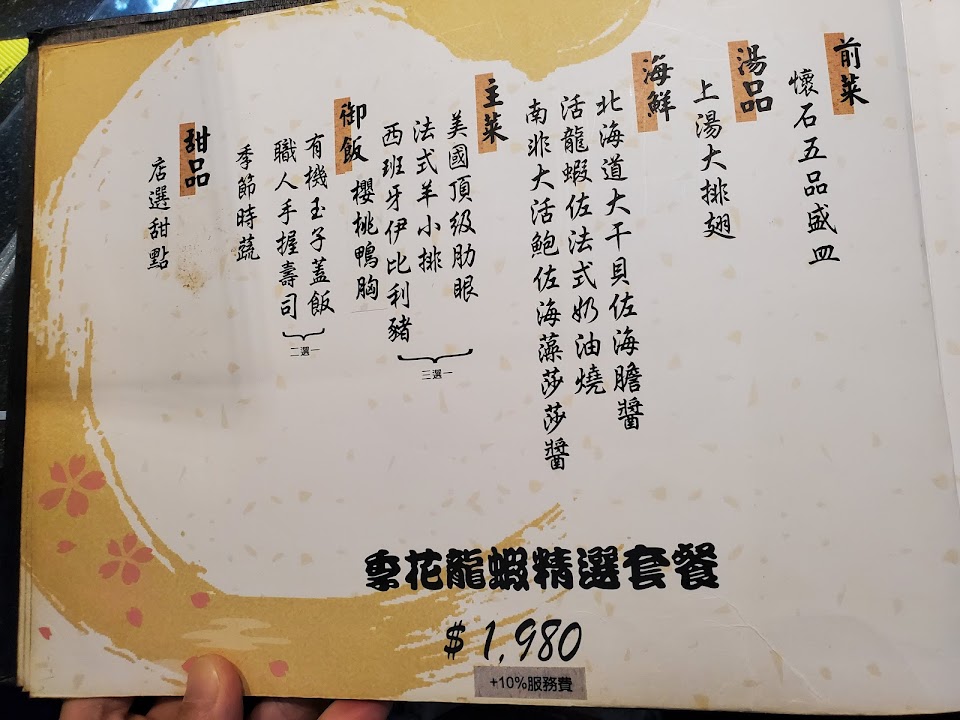 前菜
懷石五品盛皿
湯品
上湯大排翅
海鮮
北海道大干貝佐海膽醬
活龍蝦佐法式奶油燒
南非大活鮑佐海藻莎莎醬
主菜
美國頂級肋眼
法式羊小排
西班牙伊比利豬
櫻桃鴨胸
三選一
御飯
有機玉子蓋飯
職人手握壽司
二選一
季節時蔬
甜品
店選甜點
花龍蝦精選套餐
$1,980
+10%服務費